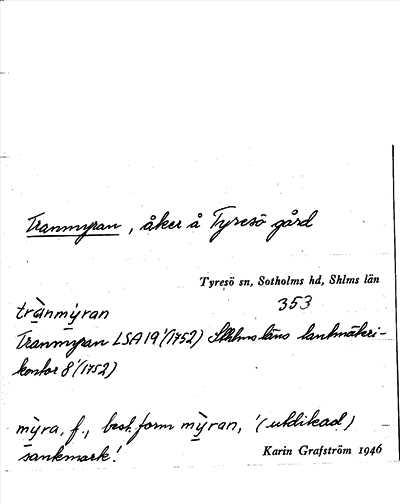 Tranmyran, åker å Tyresö gård
Tyresö sn, Sotholms hd, Shlms län
353
trànmy̱ran
Tranmyran LSA 19'(1752) Sthlms läns lantmäteri-
kontor 8'(1752)
my̱ra, f., best. form my̱ran, '(utdikad)
sankmark'.
Karin Grafström 1946